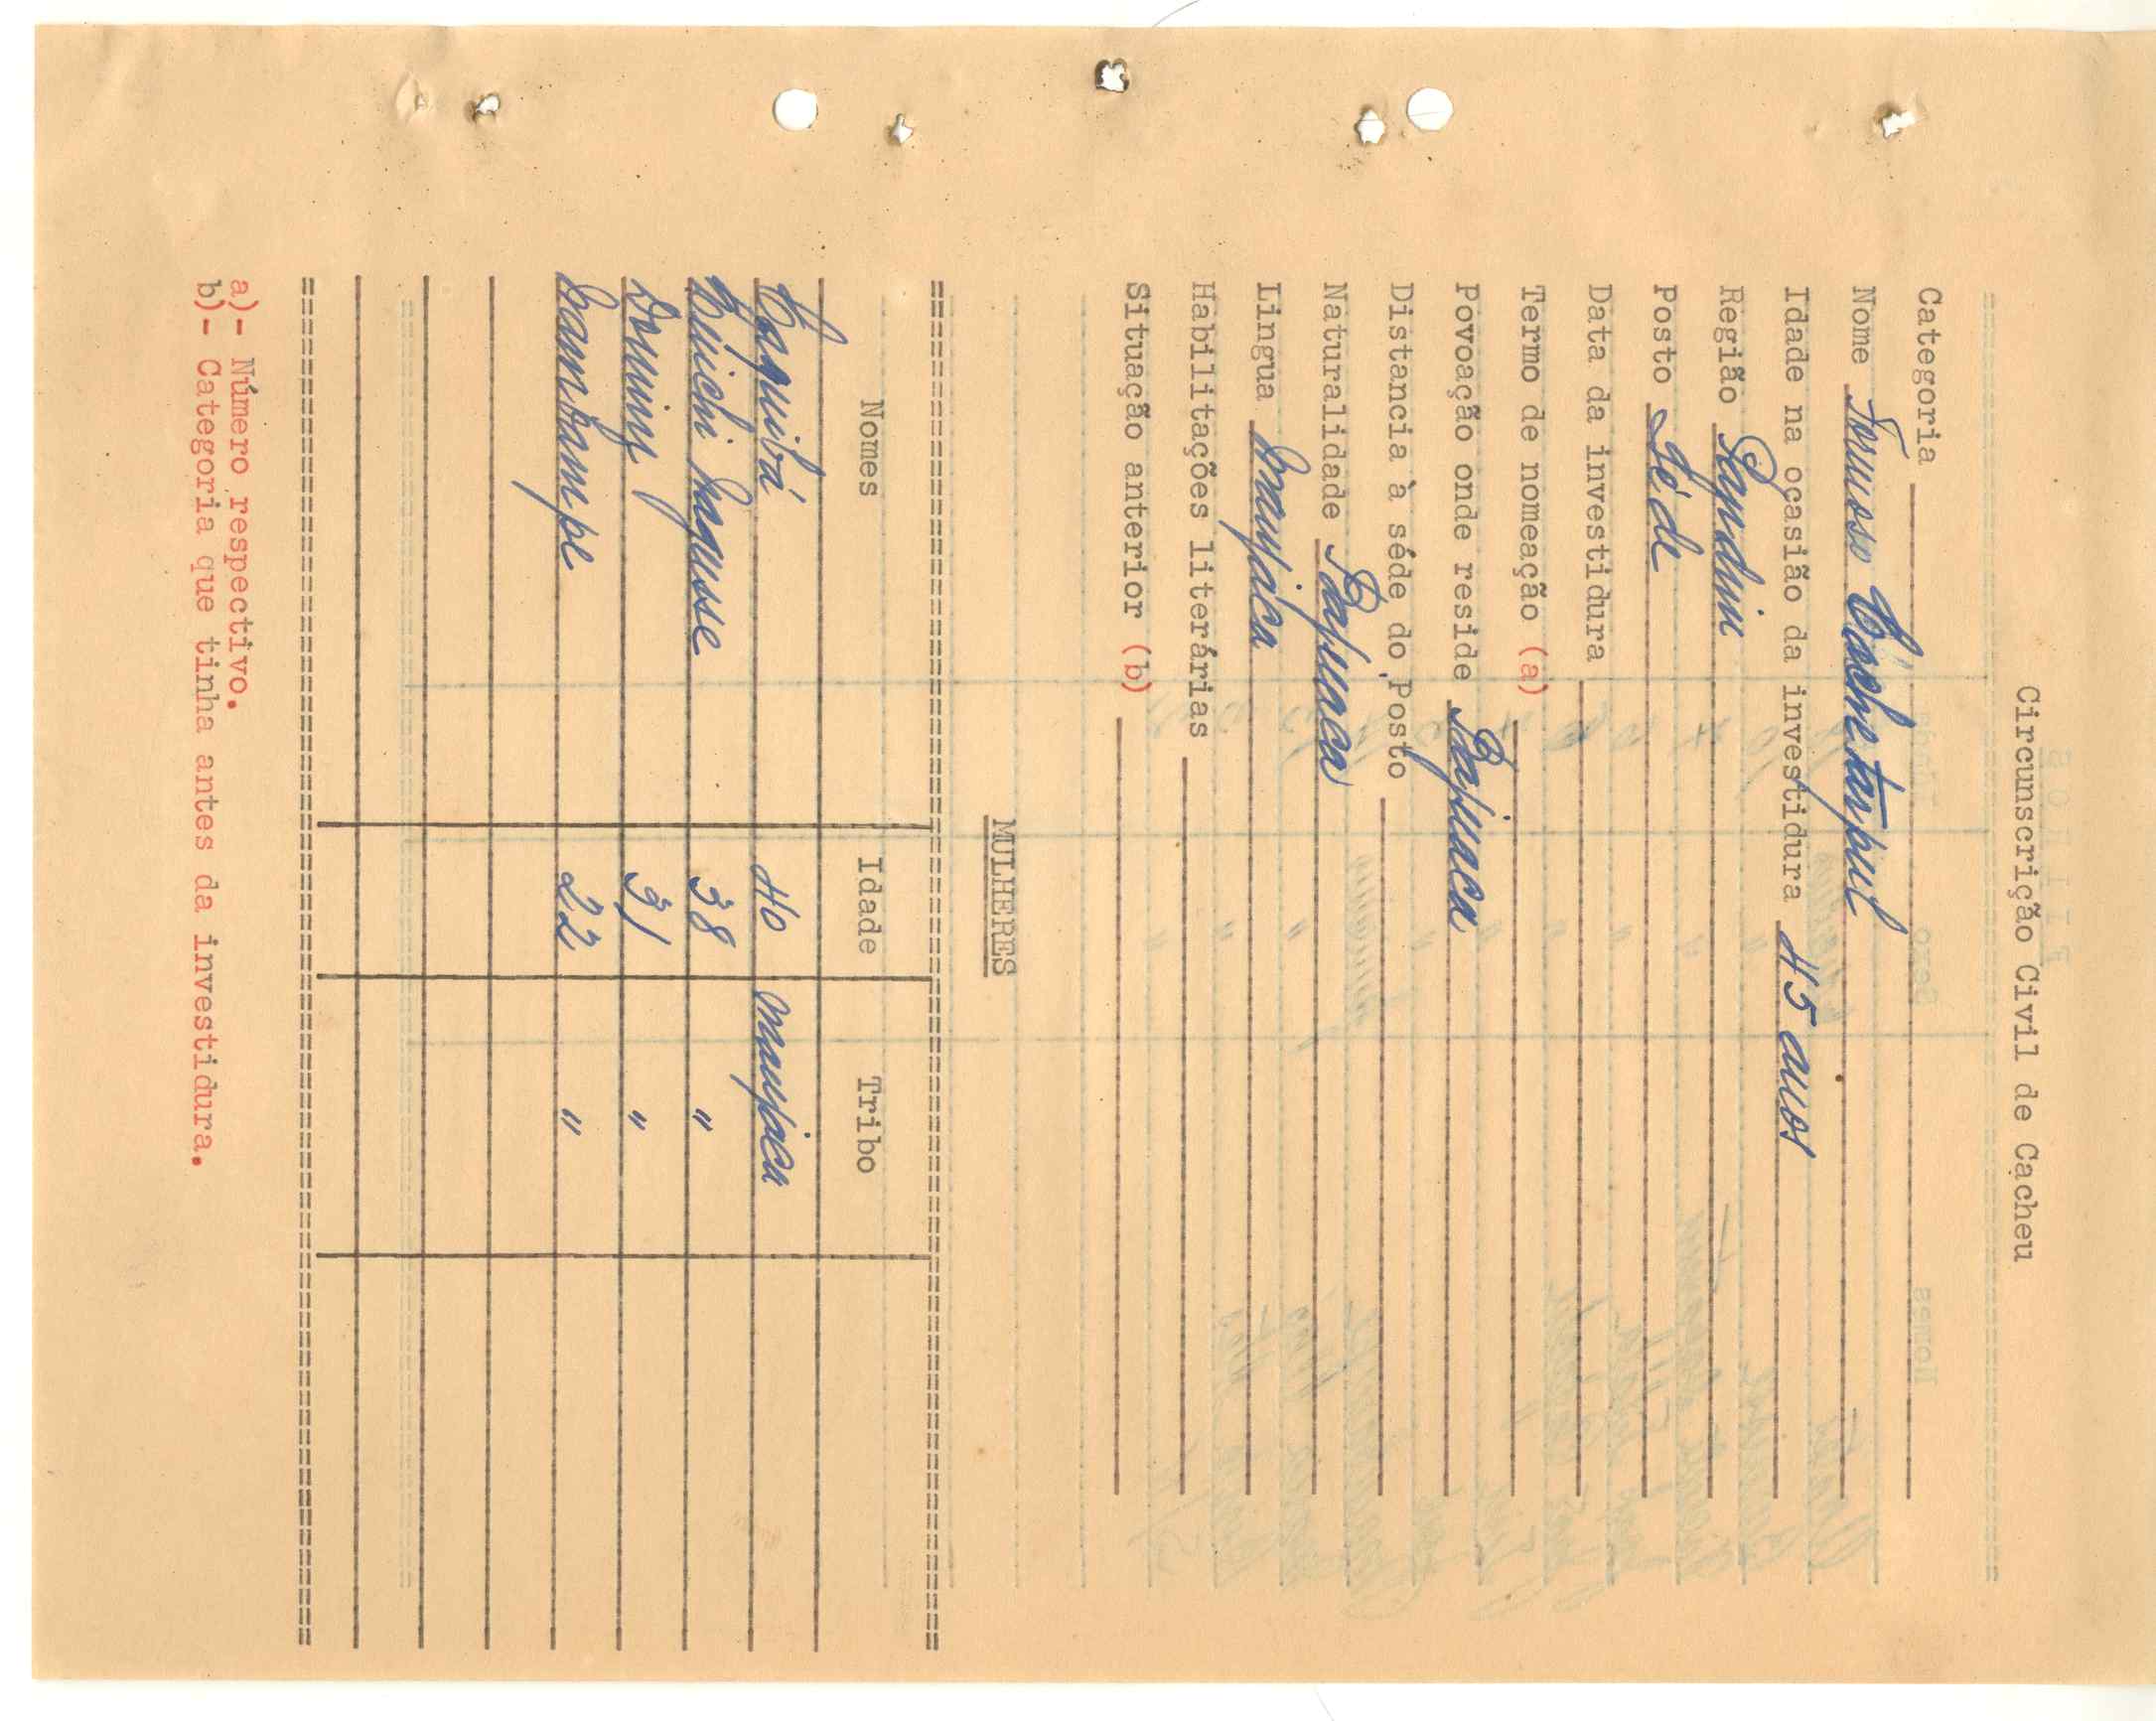 Circunscrição Civil de Cacheu
Categoria
Nome
Idade na ocasião da investidura 45 anos
Região Pandim
Posto Séde
Data da investidura
Termo de nomeação (a)
Povoação onde reside Bajuaca
Distancia à séde do Posto
Naturalidade Bajuaca
Lingua manjaca
Habilitações literárias
Situação anterior (b)
MULHERES
Nomes Idade Tribo
40 manjaca
38 "
Douiny 31 "
22 "
a)- Número respectivo.
b)- Categoria que tinha antes da investidura.